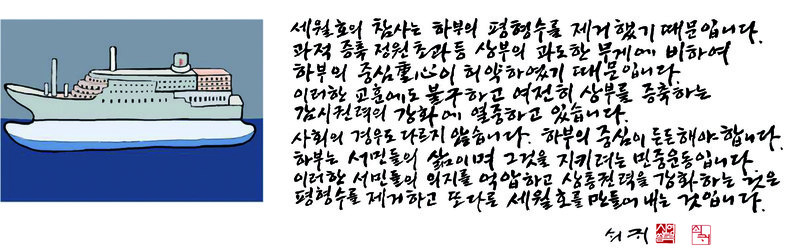 세월호의 참사는 하부의 평형수를 제거했기 때문입니다.
과적 증축 정원초과등 상부의 과도한 무게에 비하여
하부의 중심重心이 허약하였기 때문입니다.
이러한 교훈에도 불구하고 여전히 상부를 증축하는
감시권력의 강화에 열중하고 있습니다.
사회의 경우도 다르지 않습니다. 하부의 중심이 든든해야 합니다.
하부는 서민들의 삶이며 그것을 지키려는 민중운동입니다
이러한 서민들의 의지를 억압하고 상층권력을 강화하는 것은
평형수를 제거하고 또다른 세월호를 만들어 내는 것입니다.
쇠귀